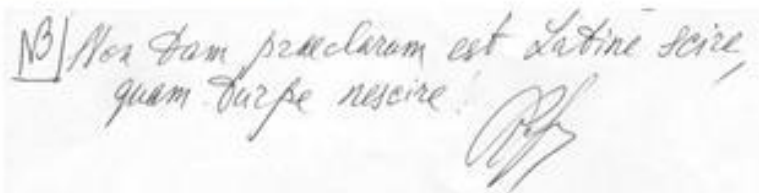 NB Non tam praeclarum est Latine scire,
quam turpe nescire!